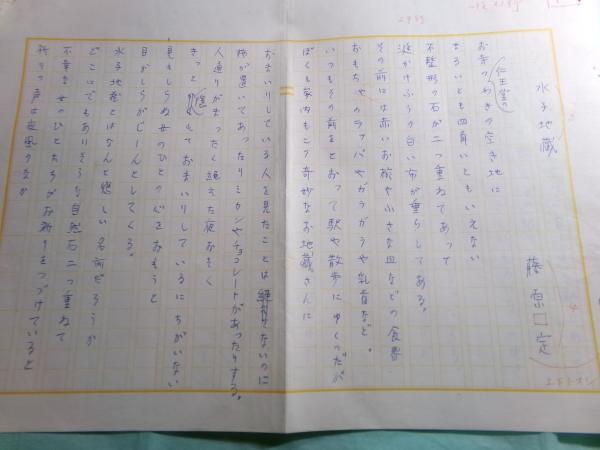 水子地蔵
藤原□定
仁王堂の
お寺のわきの空き地に
まるいとも四角いともいえない
不整形の石が二つ重ねてあって
涎かけふうの白い布が垂らしてある。
その前には赤いお椀や小さな皿などの食器
おもちゃのラッパやガラガラや乳首など。
いつもその前をとおって駅や散歩にゆくのだが
ぼくも家内もこの奇妙なお地蔵さんに
おまいりしている人を見たことは絶対ないのに
物が置いてあったりミカンやチョコレートがあったりする。
人通りがまったく絶えた夜おそく
きっと隠れておまいりしているにちがいない
見もしらぬ女のひとの心をおもうと
目がしらがじーんとしてくる。
水子地蔵とはなんと悲しい名前だろうか
どこにでもありそうな自然石二つ重ねて
不幸な女のひとたちがお祈りをつづけていると
祈りの声は夜風のなか